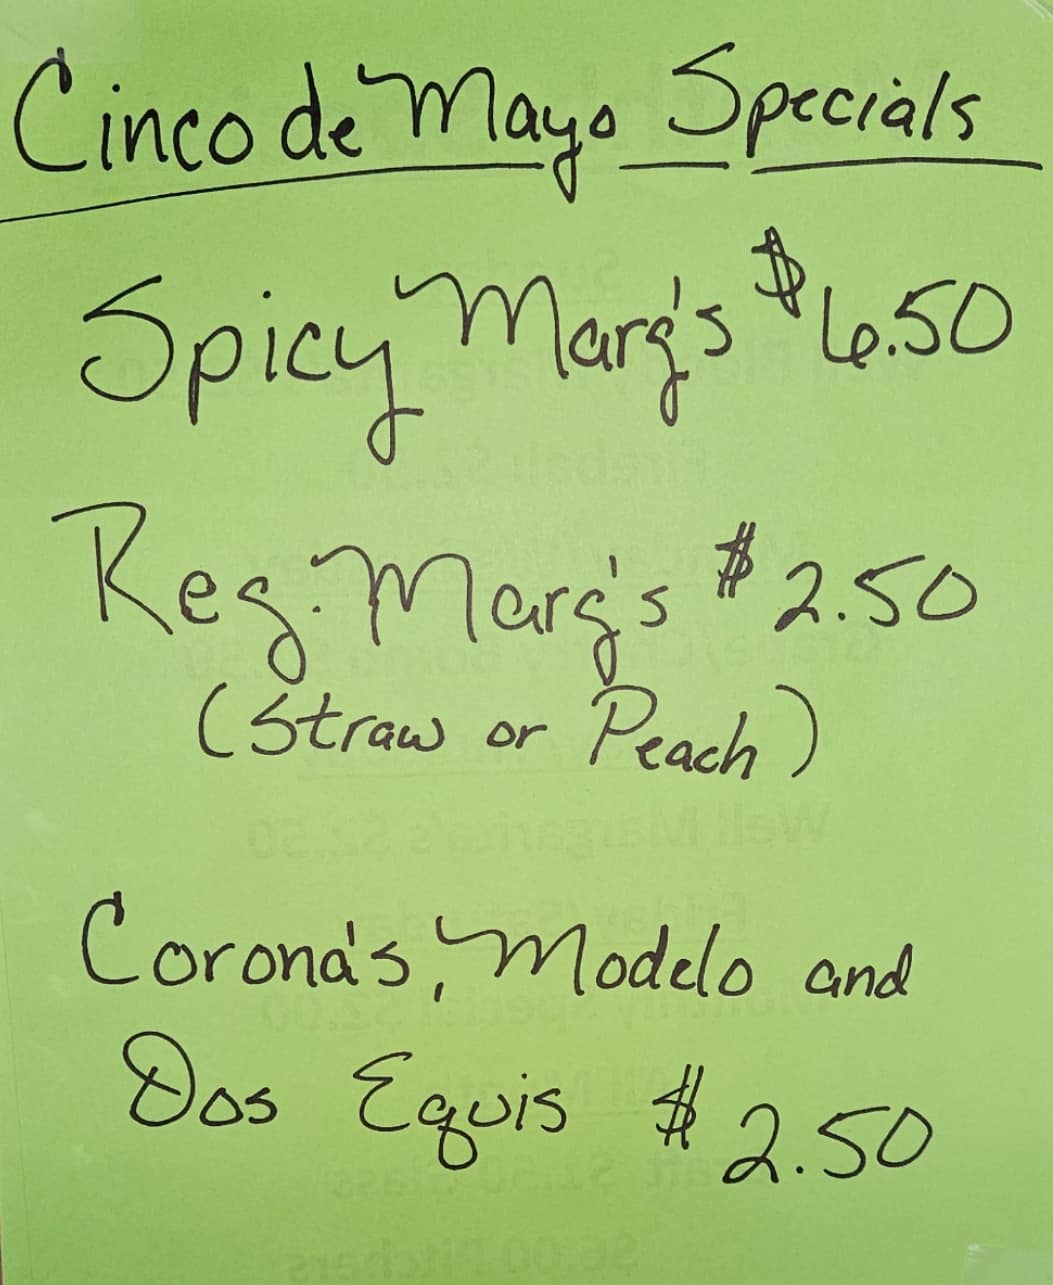 Cinco de Mayo Specials
Spicy Marg's $6.50
Reg. Marg's $2.50
(Straw or Peach)
Corona's, Modelo and
Dos Equis $2.50